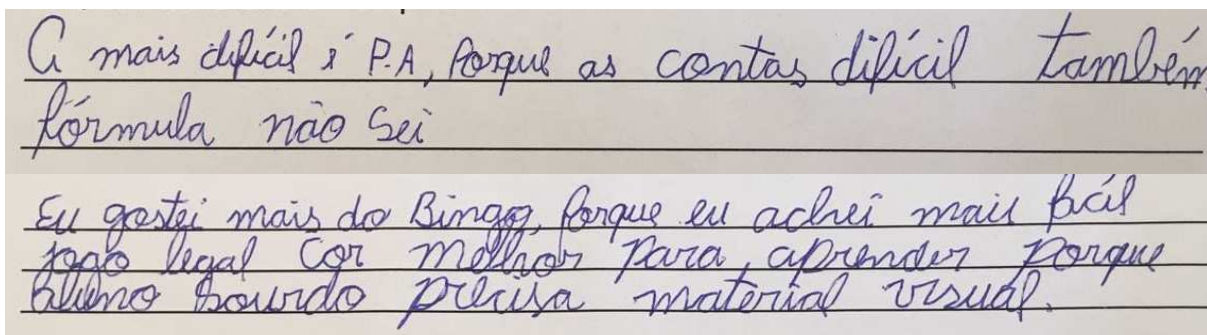 A mais difícil é P.A, Porque as contas difícil também
fórmula não sei
Eu gostei mais do Bingo, Porque eu achei mais fácil
jogo legal cor melhor Para, aprender Porque
aluno sourdo precisa material visual.